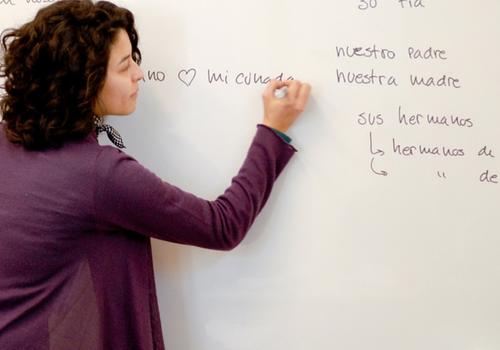 su tía
no ♡ mi cunada
nuestro padre
nuestra madre
sus hermanos
↳ hermanos de
↳ " de